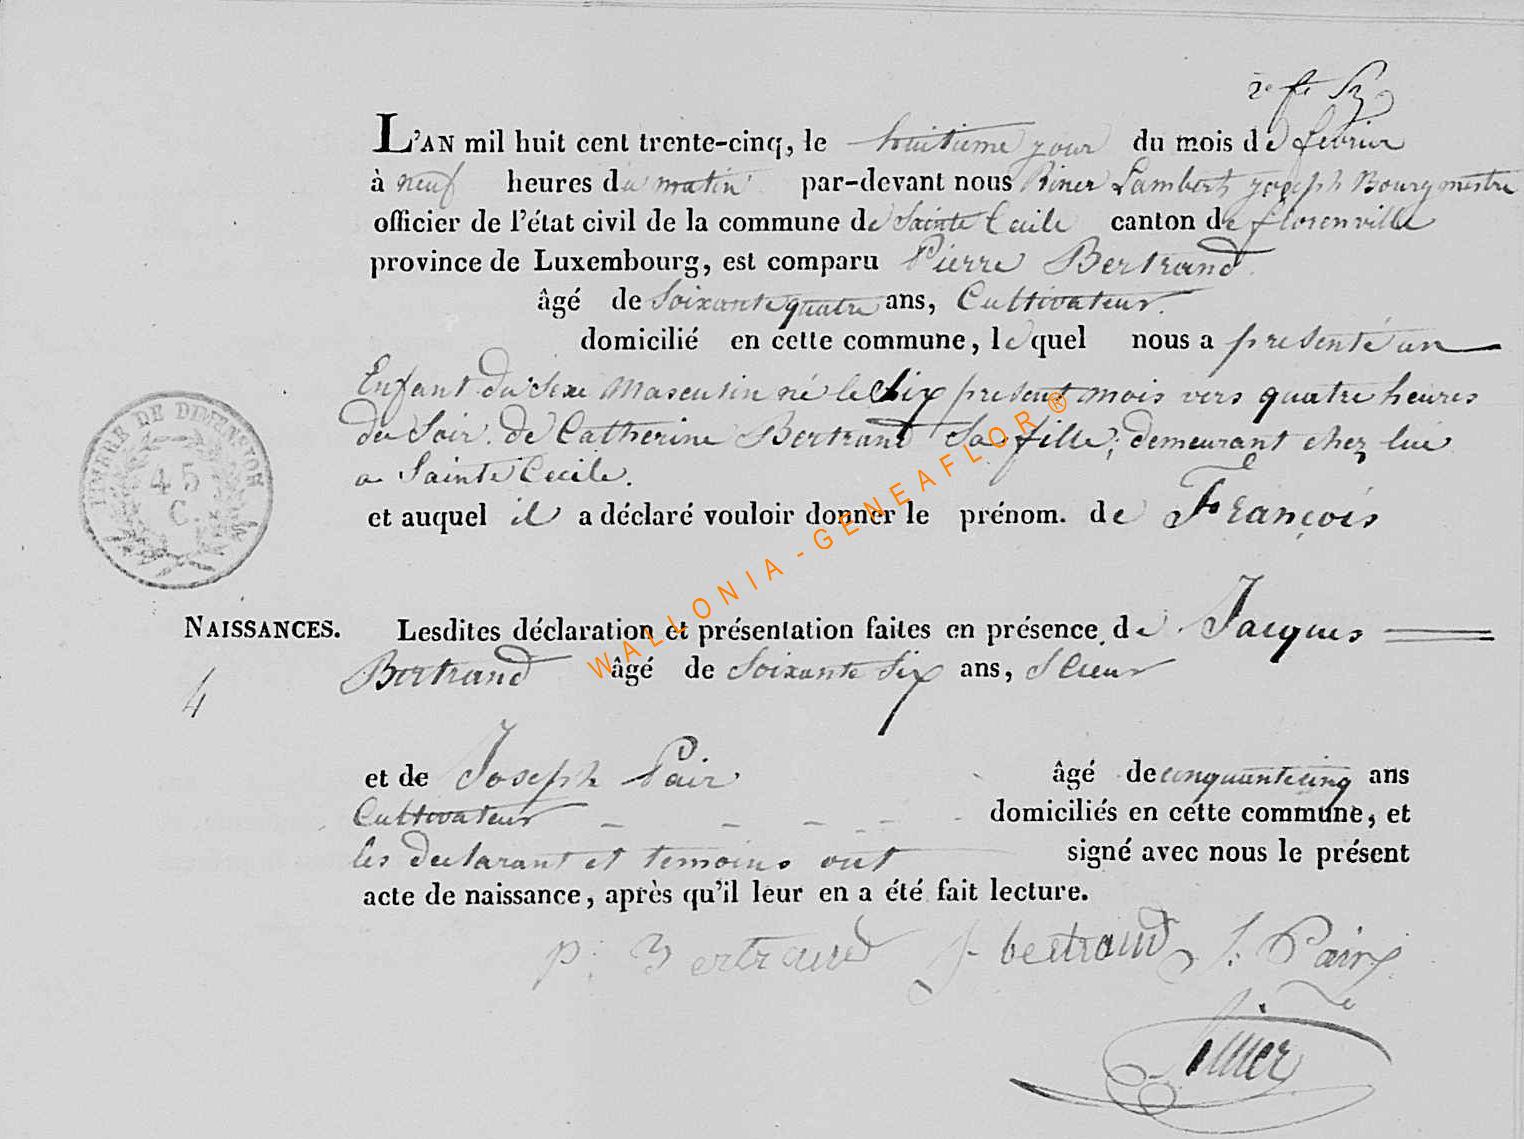 2e ft
L'AN mil huit cent trente-cinq, le huitieme jour du mois de fevrier
à neuf heures du matin par-devant nous Riner Lambert joseph Bourgmestre
officier de l'état civil de la commune de Sainte Cecile canton de florenville
province de Luxembourg, est comparu Pierre Bertrand
âgé de Soixante quatre ans, Cultivateur.
domicilié en cette commune, lequel nous a presenté un
Enfant du Sexe Masculin né le Six present mois vers quatre heures
du Soir. de Catherine Bertrand Sa fille, demeurant chez lui
a Sainte Cecile.
et auquel il a déclaré vouloir donner le prénom. de François
TIMBRE DE DIMENSION
45
C.
NAISSANCES. Lesdites déclaration et présentation faites en présence de Jacques
4
Bertrand âgé de Soixante Six ans, Scieur
et de Joseph Pair âgé de cinquante cinq ans
Cultivateur domiciliés en cette commune, et
les declarant et temoins ont signé avec nous le présent
acte de naissance, après qu'il leur en a été fait lecture.
p. Bertrand J. bertrand J. Pair
WALLONIA - GENEAFLOR ®